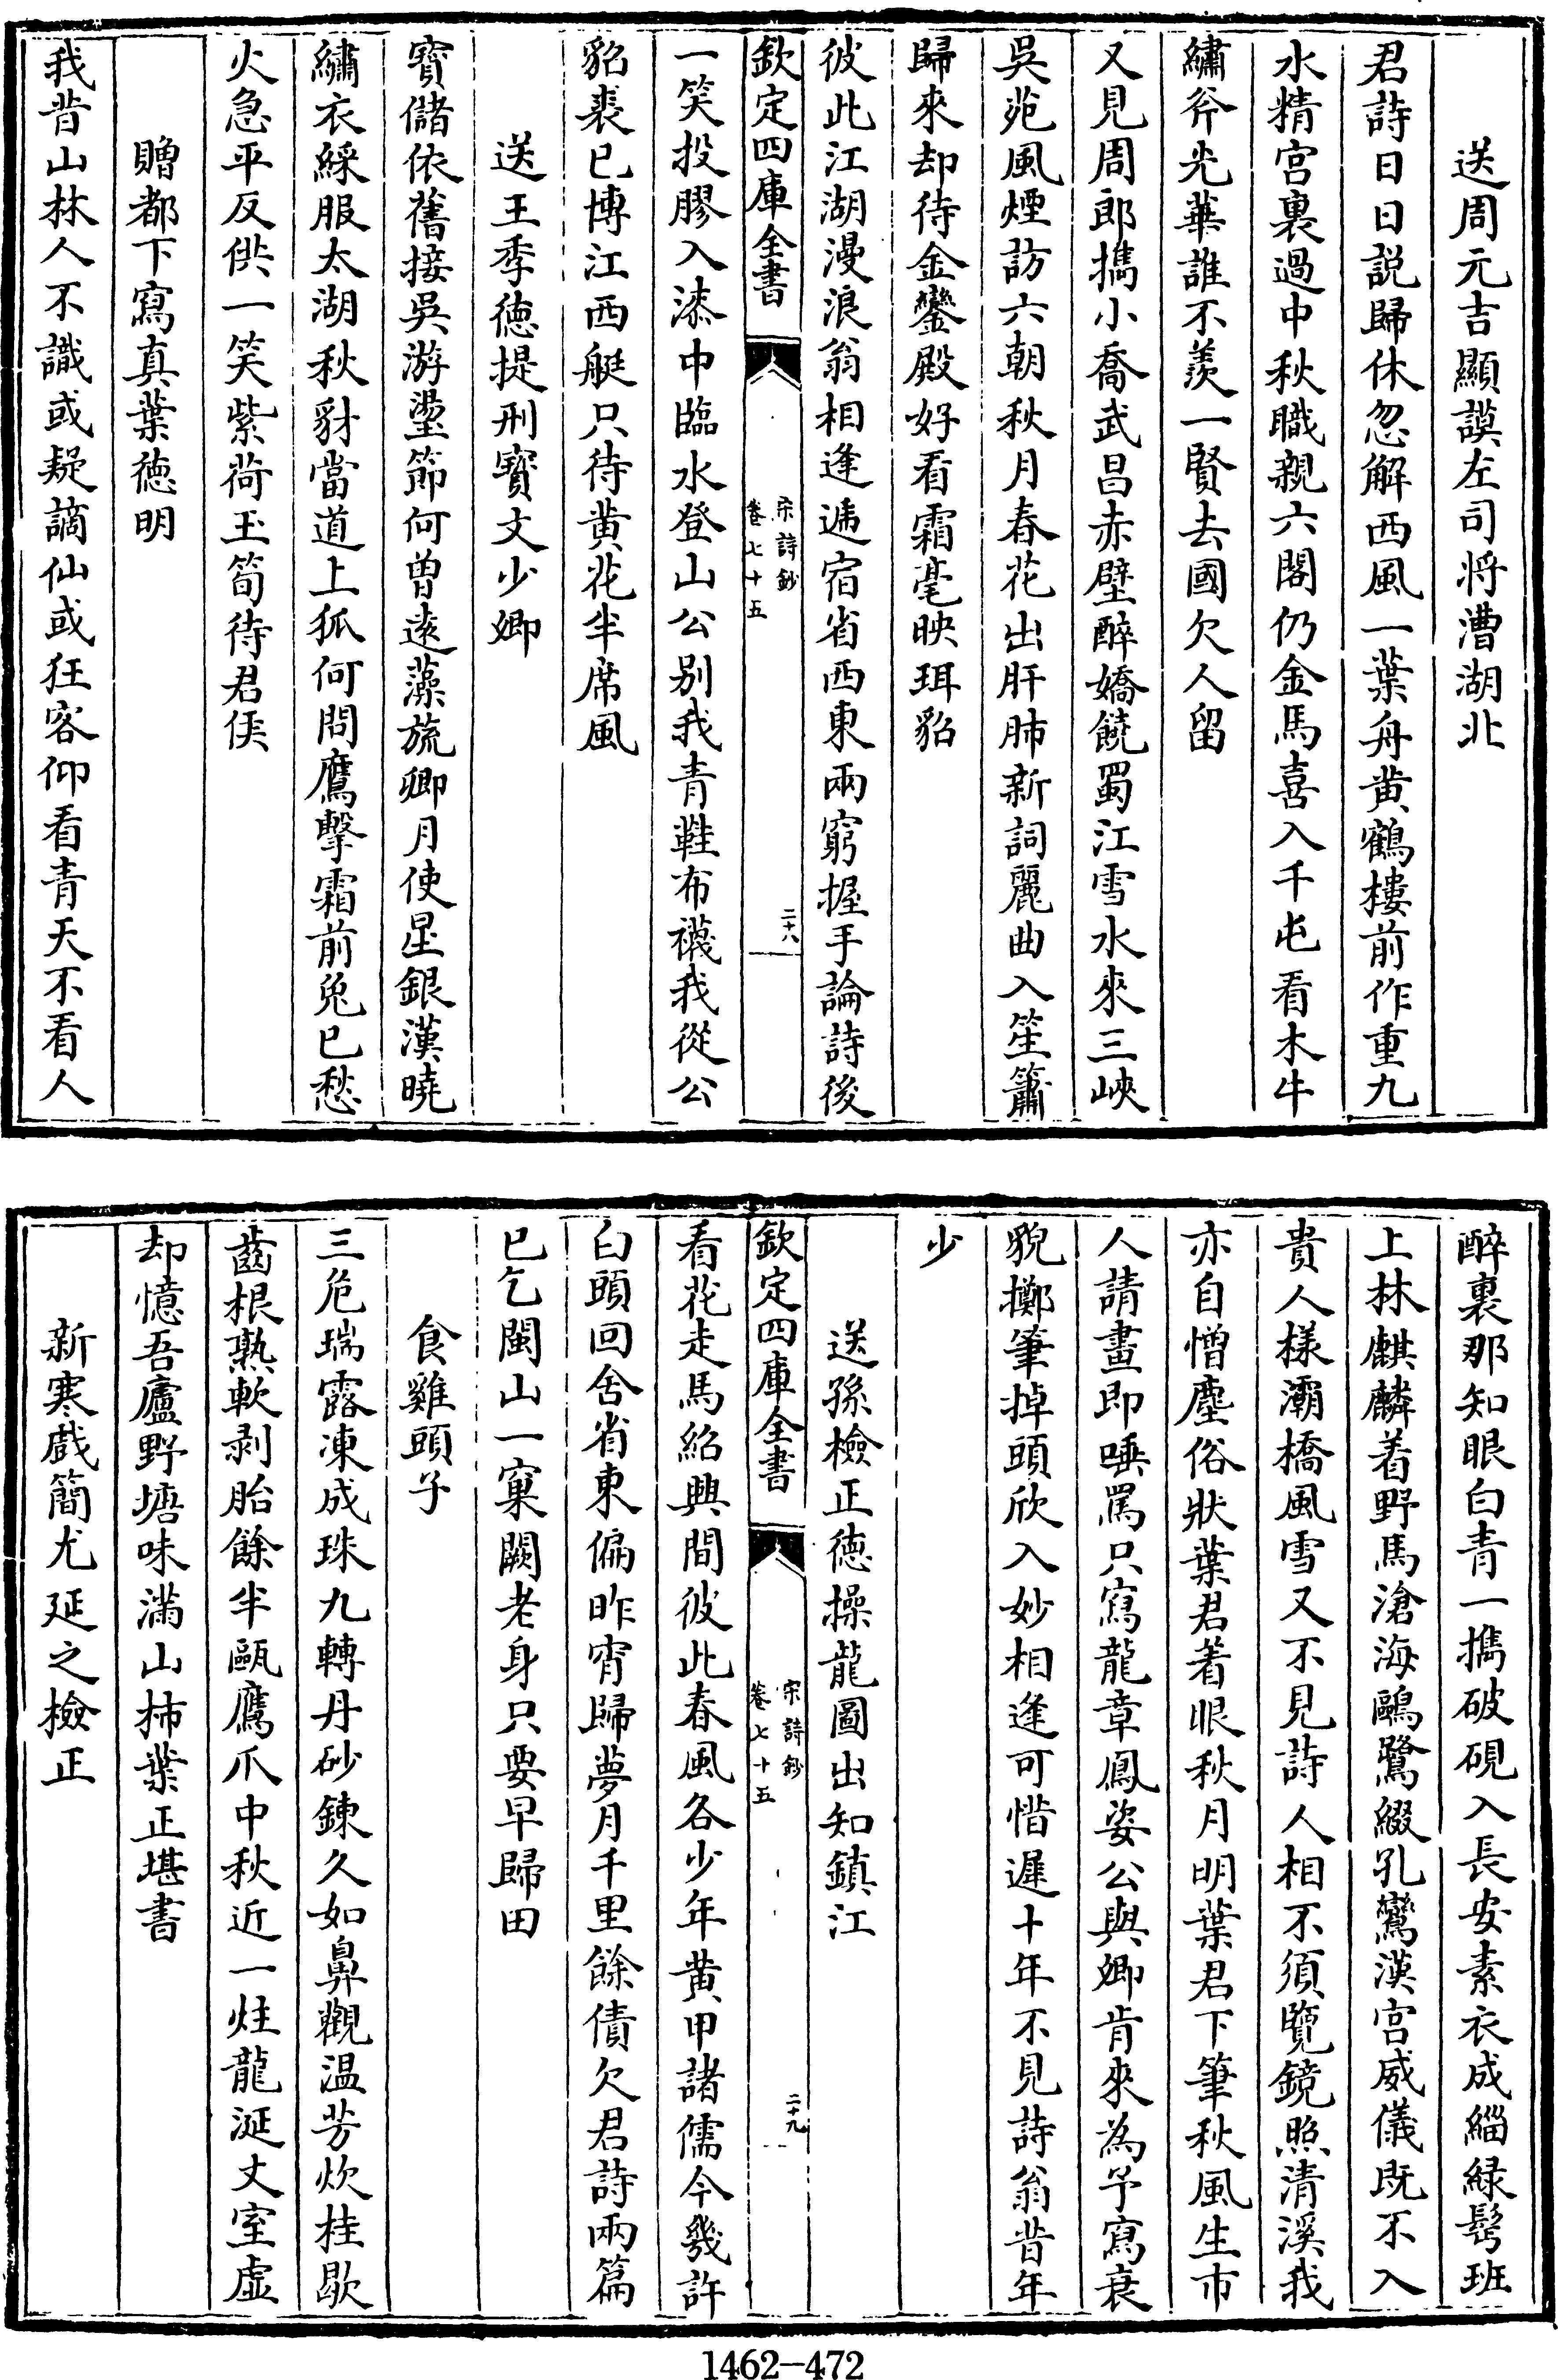 送周元吉顯謨左司将漕湖北
君詩日日説歸休忽解西風一葉舟黄鶴樓前作重九
水精宫裏過中秋職親六閣仍金馬喜入千屯看木牛
繡斧光華誰不羡一賢去國欠人留
又見周郎擕小喬武昌赤壁醉嬌饒蜀江雪水來三峽
吳苑風煙訪六朝秋月春花出肝肺新詞麗曲入笙簫
歸來却待金鑾殿好看霜毫映珥貂
彼此江湖漫浪翁相逢遞宿省西東兩窮握手論詩後
欽定四庫全書
宋詩鈔
卷七十五
二十八
一笑投膠入漆中臨水登山公别我青鞋布襪我從公
貂裘已博江西艇只待黄花半席風
送王季徳提刑寳文少卿
寳儲依舊接吳游盪節何曾逺藻旒卿月使星銀漢曉
繡衣綵服太湖秋豺當道上狐何問鷹擊霜前兔已愁
火急平反供一笑紫荷玉筍待君侯
贈都下寫真葉徳明
我昔山林人不識或疑謫仙或狂客仰看青天不看人
醉裏那知眼白青一擕破硯入長安素衣成緇緑鬂班
上林麒麟着野馬滄海鷗鷺綴孔鸞漢宫威儀既不入
貴人樣灞橋風雪又不見詩人相不須覽鏡照清溪我
亦自憎塵俗狀葉君着眼秋月明葉君下筆秋風生市
人請畫即唾罵只寫龍章鳳姿公與卿肯來為予寫衰
貌擲筆掉頭欣入妙相逢可惜遲十年不見詩翁昔年
少
送孫檢正徳操龍圖出知鎮江
欽定四庫全書
宋詩鈔
卷七十五
二十九
看花走馬紹興間彼此春風各少年黄甲諸儒今幾許
白頭回舍省東偏昨宵歸夢月千里餘債欠君詩兩篇
已乞閩山一窠闕老身只要早歸田
食雞頭子
三危瑞露凍成珠九轉丹砂鍊久如鼻觀温芳炊桂歇
齒根熟軟剥胎餘半甌鷹爪中秋近一炷龍涎丈室虚
却憶吾廬野塘味滿山柿葉正堪書
新寒戲簡尤延之檢正
1462-472